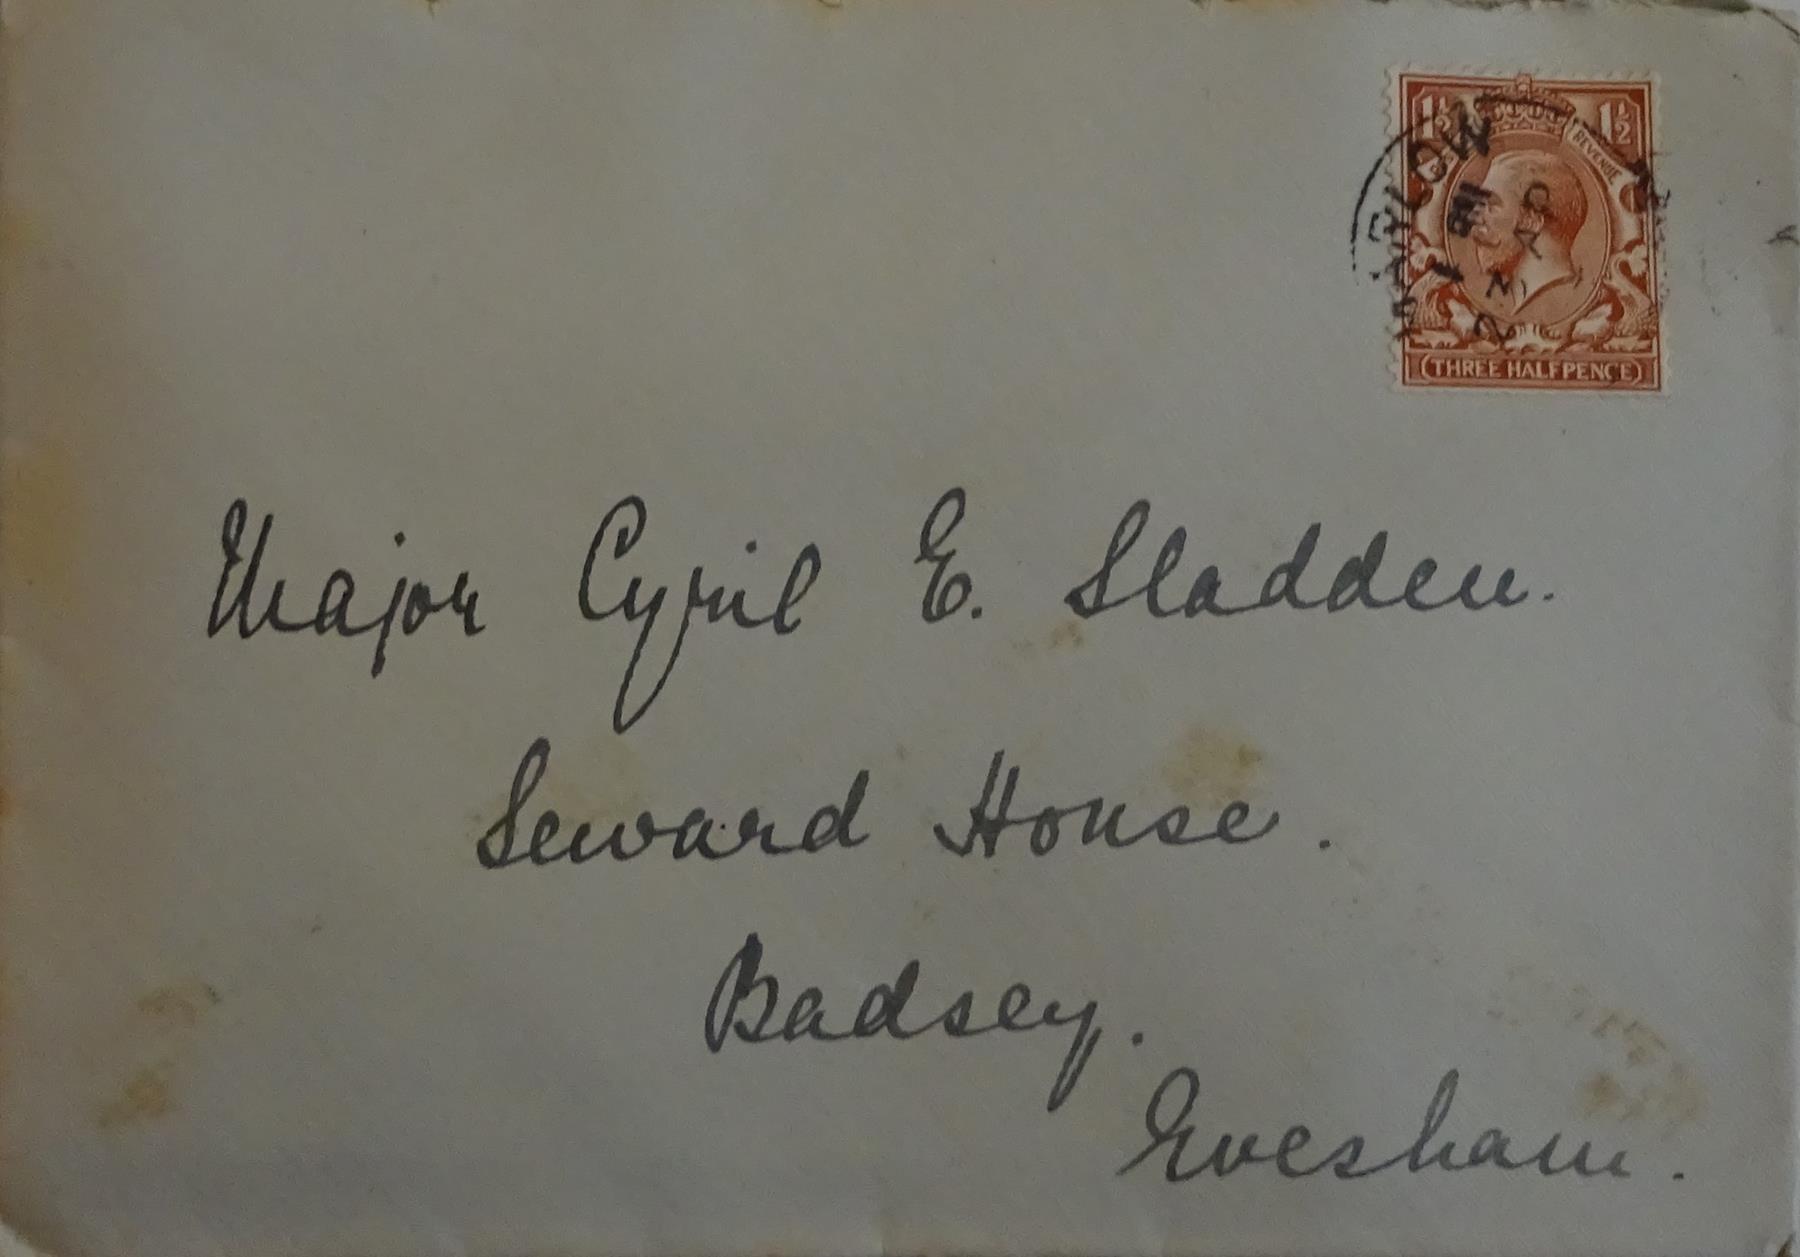 1½ 1½
REVENUE
THREE HALFPENCE
Major Cyril E. Sladden.
Seward House.
Badsey.
Evesham.